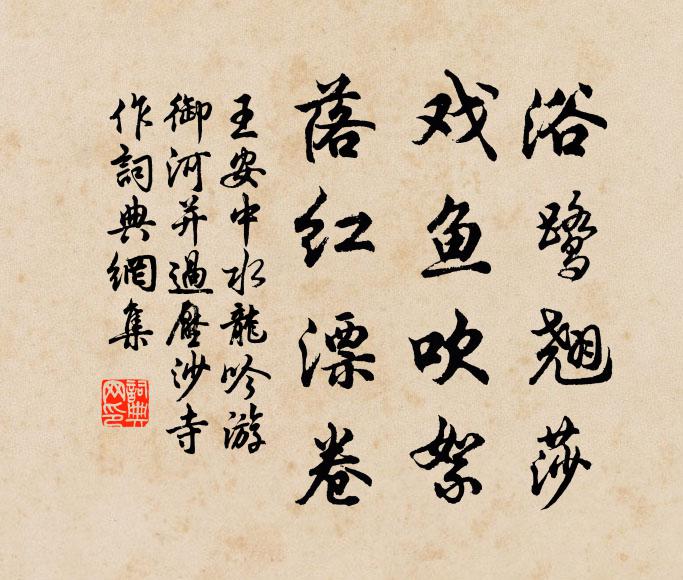 浴鹭翘莎
戏鱼吹絮
落红漂卷
王安中水龍吟游
御河并過壓沙寺
作詞典網集
詞典
网印